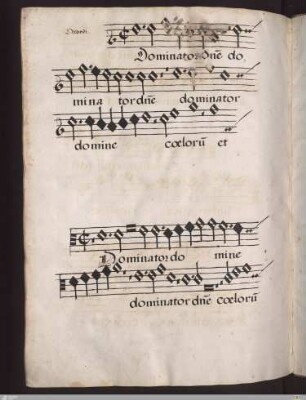 Dominator dne do
mina tor dne dominator
domine cœlorū et
Dominator do mine
dominator dne cœlorū